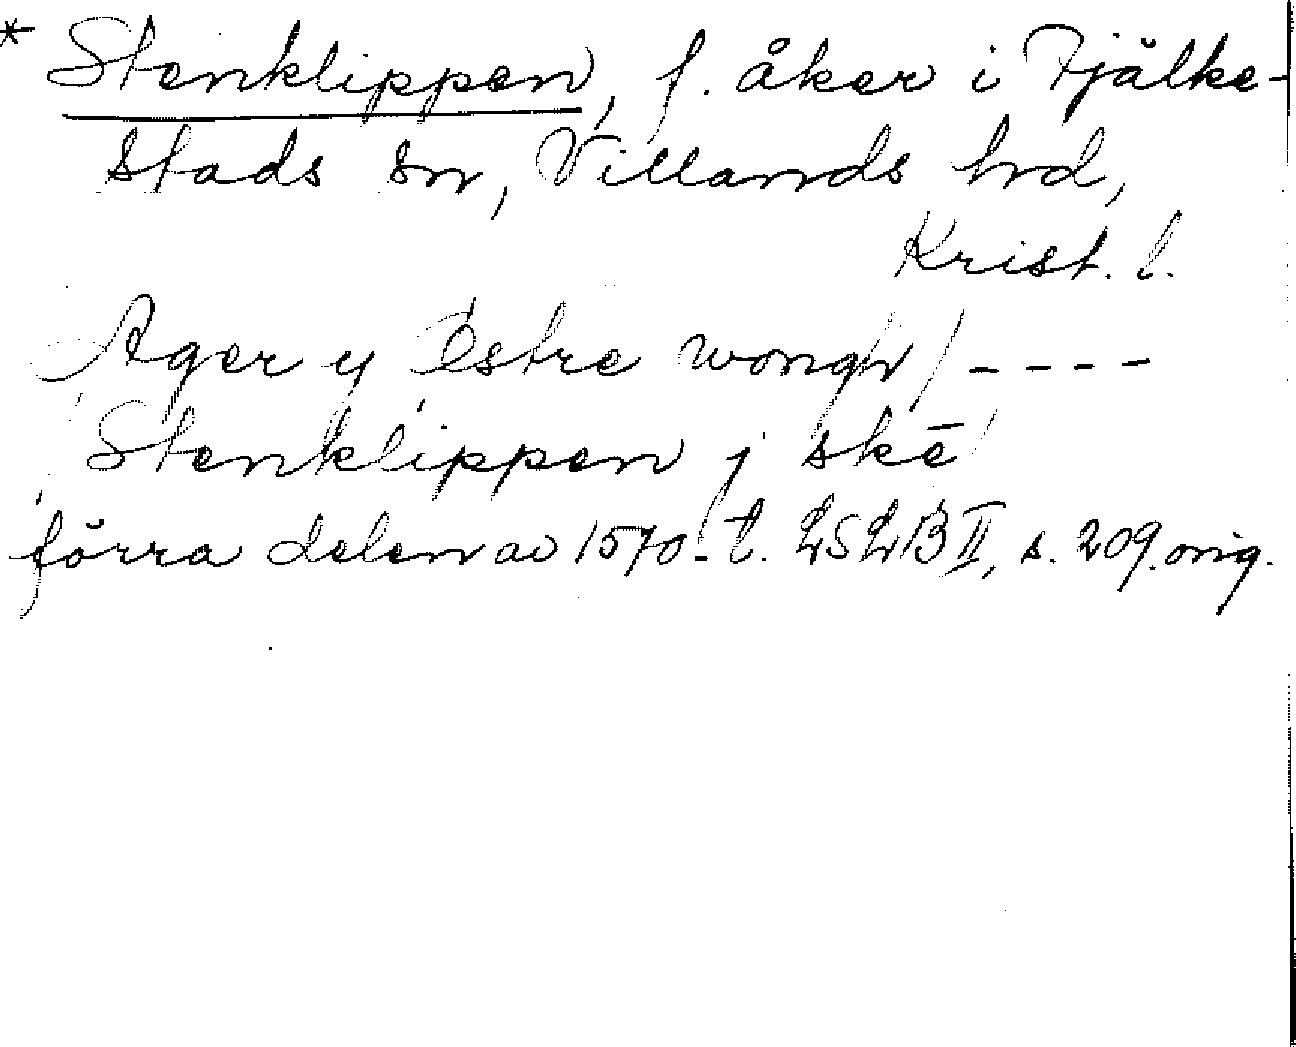 * Stenklippen, f. åker i Fjälke-
stads sn, Villands hd,
Krist. l.
Ager y Östre wongh / - - - -
Stenklippen j skē
förra delen av 1570-t. LSLB II, s. 209. orig.